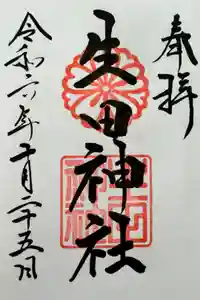 奉拝
生田神社
令和六年十月二十五日